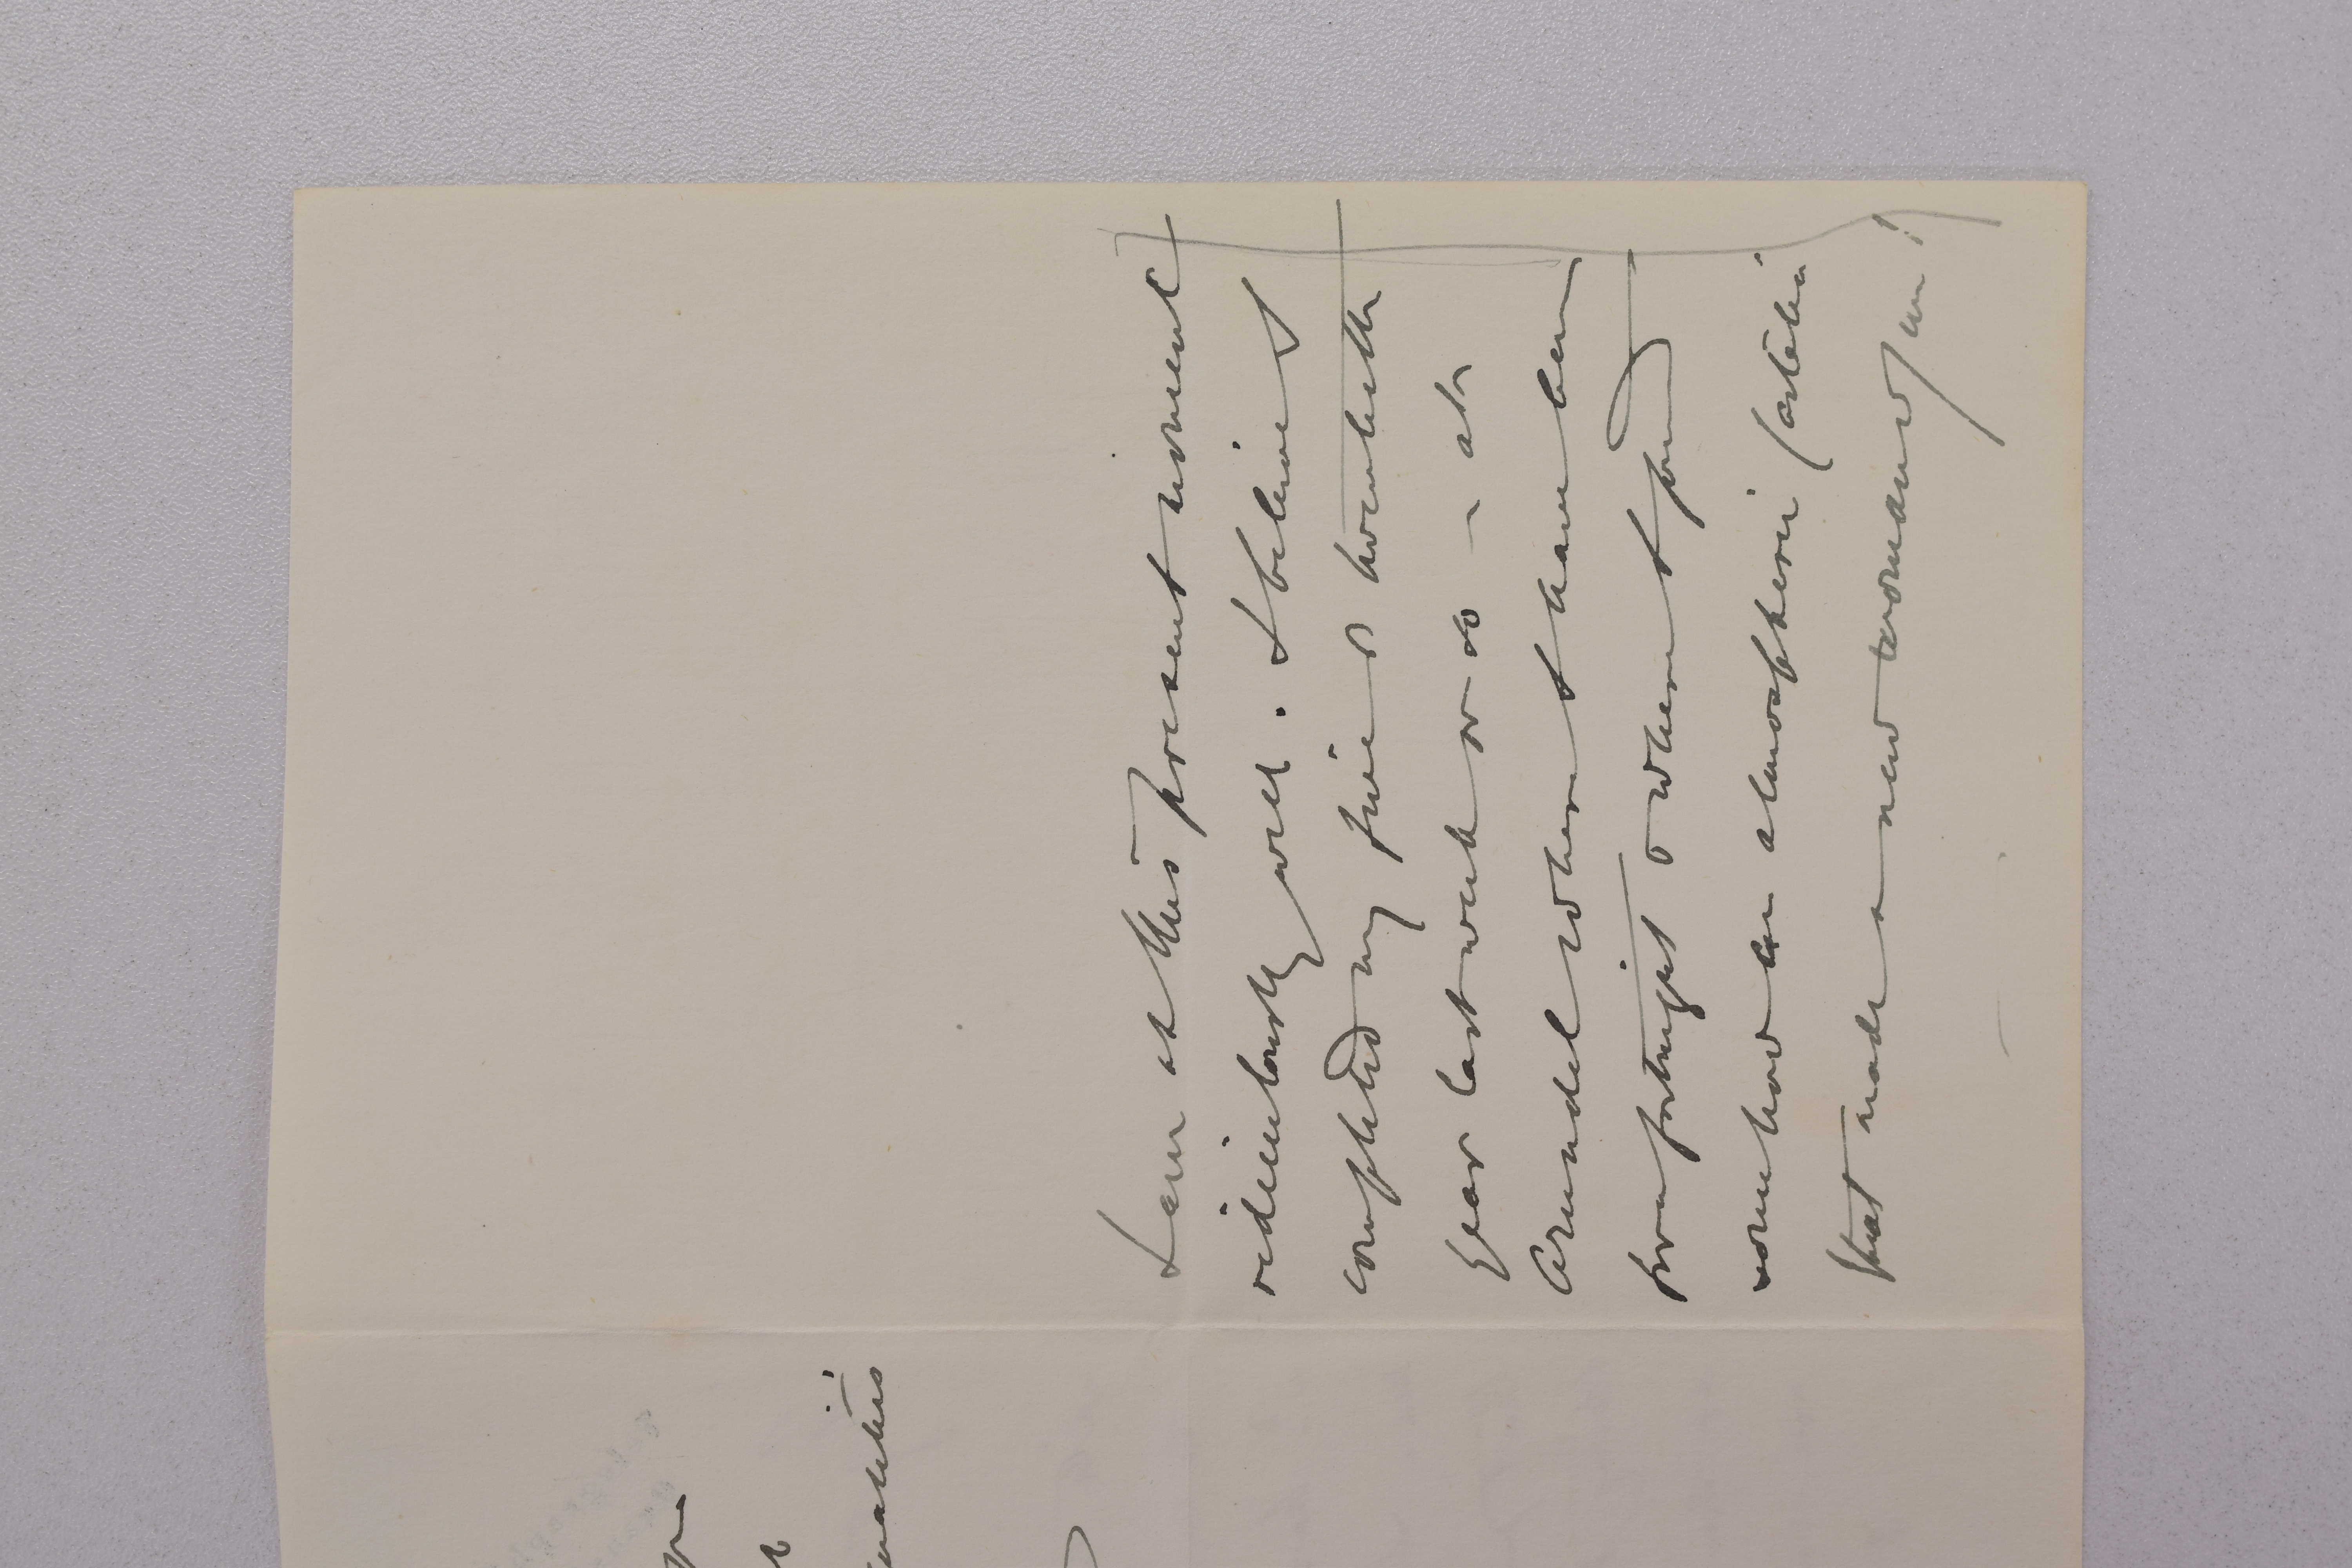 I am at this present moment
ridiculously well. I believe I
completed my five & twentieth
year last week or so — at
Arundel where I have been
for a fortnight & where I found
somehow an atmosphere
that made a new woman of me!